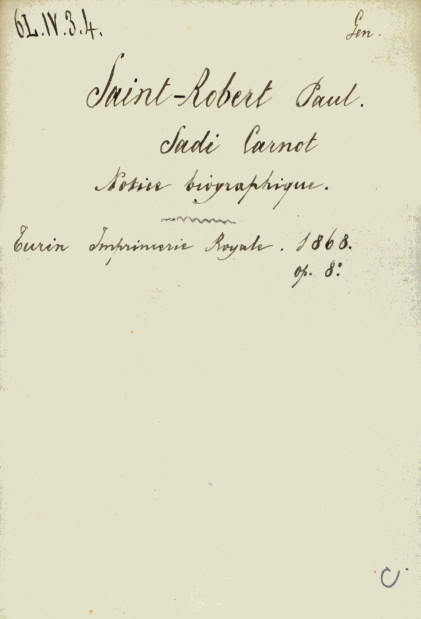 6L.IV.3.4.
Gen.
Saint-Robert Paul.
Sadi Carnot
Notice biographique.
Turin Imprimerie Royale. 1868.
op. 8º
C.